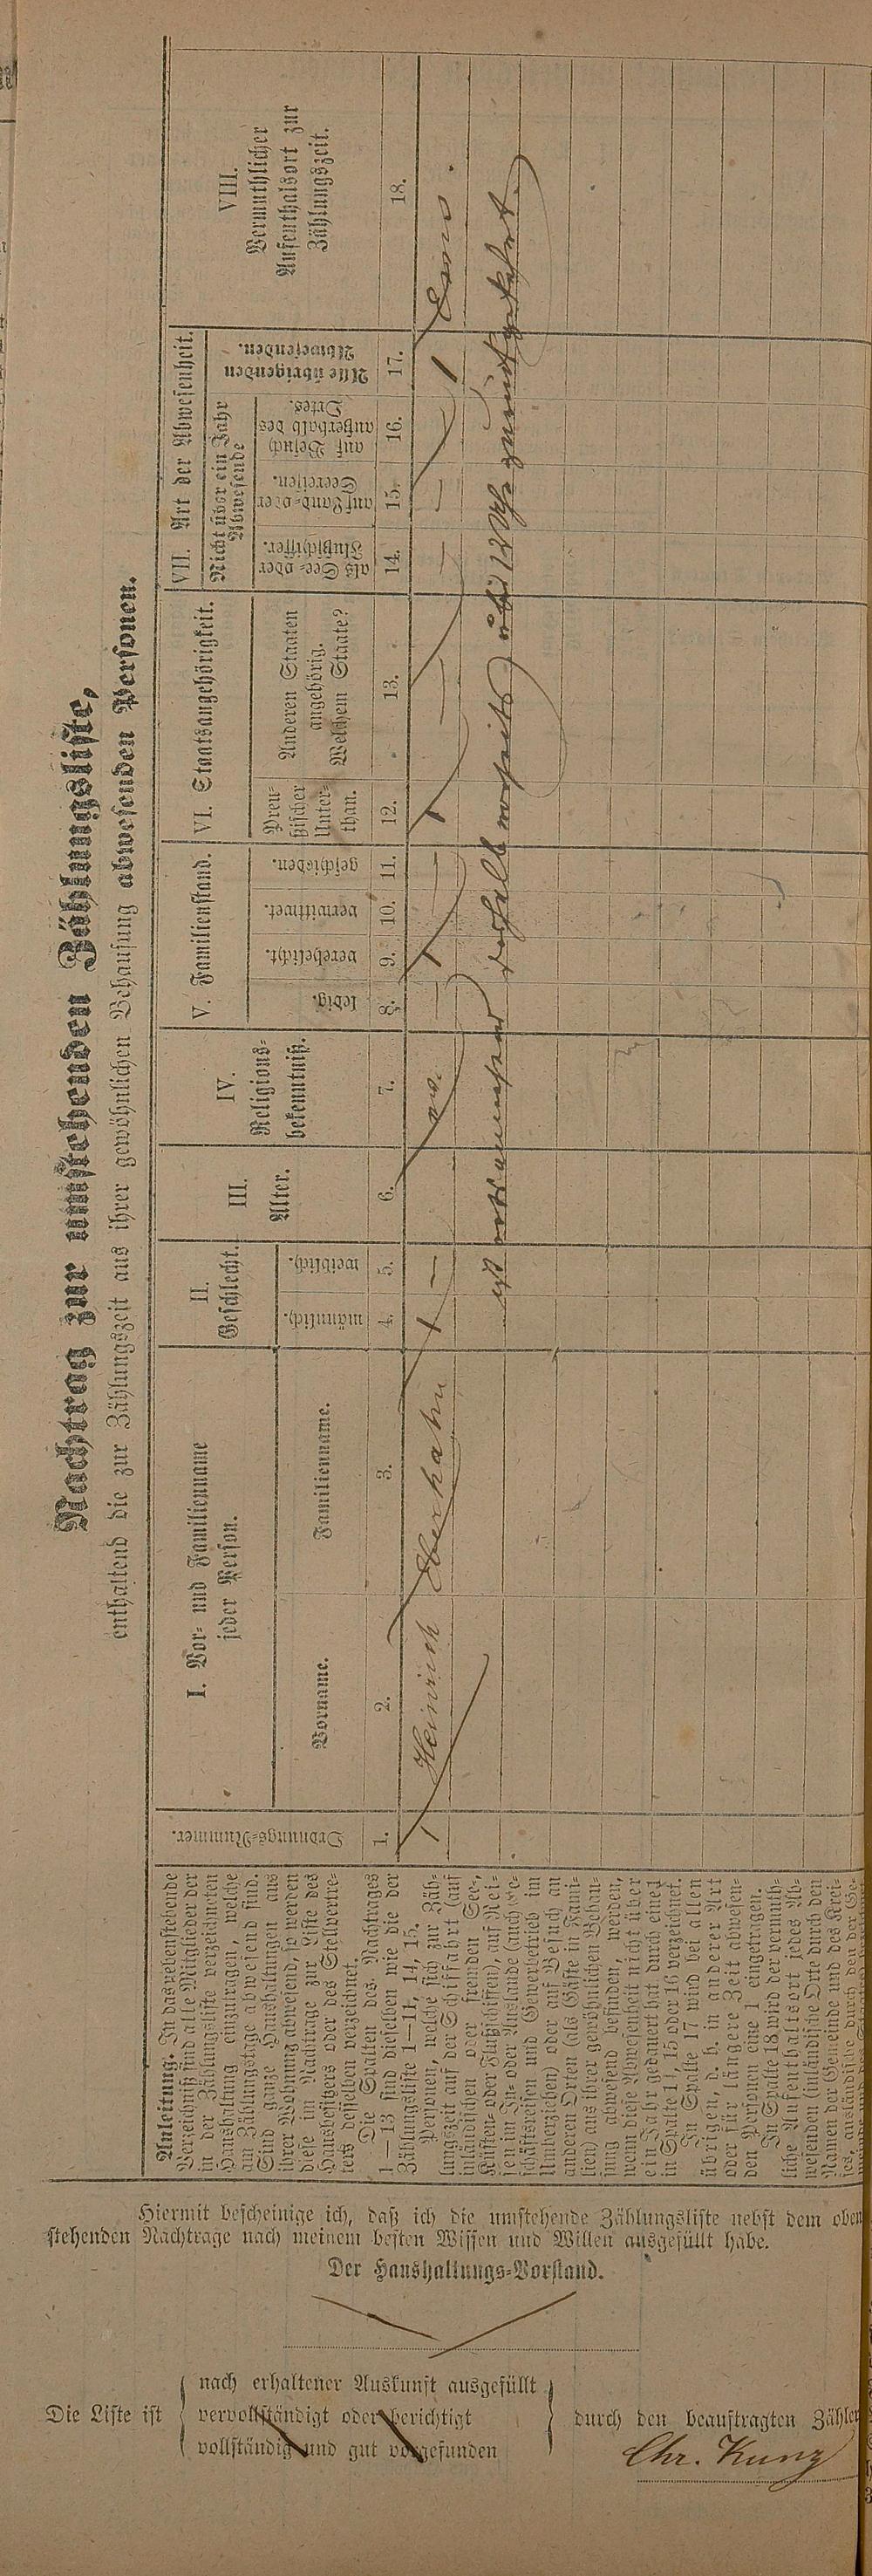 Nachtrag zur umstehenden Zählungsliste,
enthaltend die zur Zählungszeit aus ihrer gewöhnlichen Behausung abwesenden Personen.
Anleitung. In das nebenstehende
Verzeichniß sind alle Mitglieder der
in der Zählungsliste verzeichneten
Haushaltung einzutragen, welche
am Zählungstage abwesend sind.
Sind ganze Haushaltungen aus
ihrer Wohnung abwesend, so werden
diese im Nachtrage zur Liste des
Hausbesitzers oder des Stellvertre-
ters desselben verzeichnet.
Die Spalten des Nachtrages
1—13 sind dieselben wie die der
Zählungsliste 1—11, 14, 15.
Personen, welche sich zur Zäh-
lungszeit auf der Schifffahrt (auf
inländischen oder fremden See-,
Küsten- oder Flußschiffen), auf Rei-
sen im In- oder Auslande (auch Ge-
schäftsreisen und Gewerbetrieb im
Umherziehen) oder auf Besuch an
anderen Orten (als Gäste in Fami-
lien) aus ihrer gewöhnlichen Behau-
sung abwesend befinden, werden,
wenn diese Abwesenheit nicht über
ein Jahr gedauert hat durch eine 1
in Spalte 14, 15 oder 16 verzeichnet.
In Spalte 17 wird bei allen
übrigen, d. h. in anderer Art
oder für längere Zeit abwesen-
den Personen eine 1 eingetragen.
In Spalte 18 wird der vermuth-
liche Aufenthaltsort jedes Ab-
wesenden (inländische Orte durch den
Namen der Gemeinde und des Krei-
ses, ausländische durch den der Ge-
Ordnungs-Nummer.
I. Vor- und Familienname
jeder Person.
Vorname.
Familienname.
II.
Geschlecht.
männlich.
weiblich.
III.
Alter.
IV.
Religions-
bekenntniß.
V. Familienstand.
ledig.
verehelicht.
verwittwet.
geschieden.
VI. Staatsangehörigkeit.
Preu-
ßischer
Unter-
than.
Anderen Staaten
angehörig.
Welchem Staate?
VII. Art der Abwesenheit.
Nicht über ein Jahr
Abwesende
als See- oder
Flußschiffer.
auf Land- oder
Seereisen.
auf Besuch
außerhalb des
Ortes.
Alle übrigenden
Abwesenden.
VIII.
Vermuthlicher
Aufenthalsort zur
Zählungszeit.
1. 2. 3. 4. 5. 6. 7. 8. 9. 10. 11. 12. 13. 14. 15. 16. 17. 18.
1 Heinrich Eberhahn 1 — ev. — 1 — — 1 — — — — 1 Ems.
ist
Hiermit bescheinige ich, daß ich die umstehende Zählungsliste nebst dem oben
stehenden Nachtrage nach meinem besten Wissen und Willen ausgefüllt habe.
Der Haushaltungs-Vorstand.
Die Liste ist
nach erhaltener Auskunft ausgefüllt
vervollständigt oder berichtigt
vollständig und gut vorgefunden
durch den beauftragten Zähler
Chr. Kunz